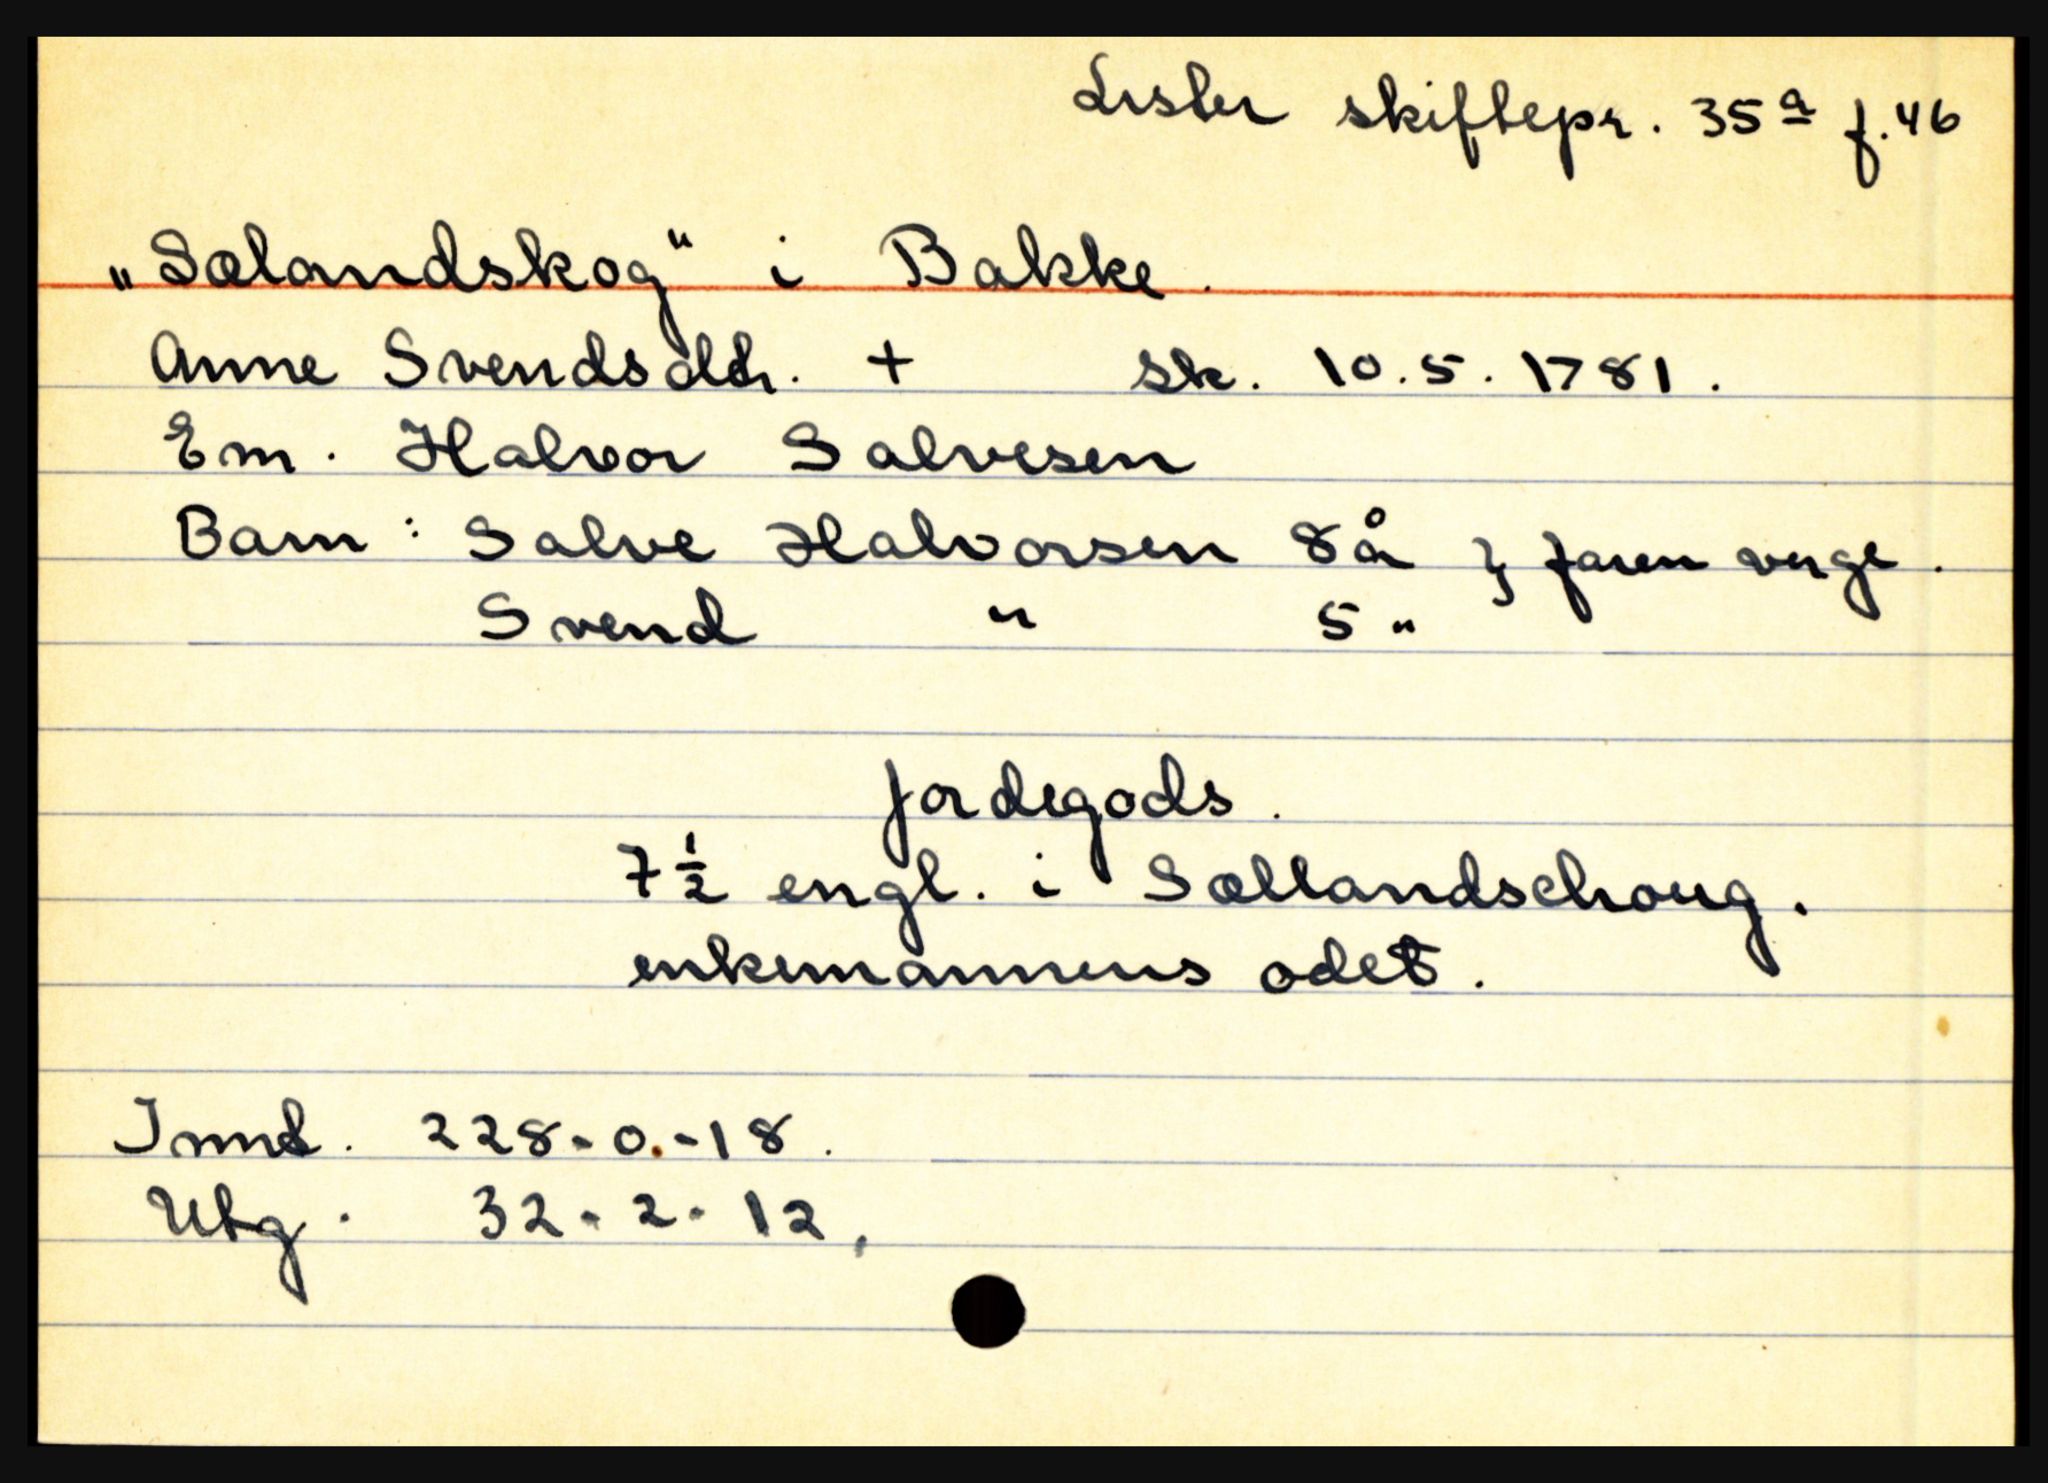 Lister skiftepr. 35a f. 46
„Sælandskog“ i Bakke.
Anne Svendsdtr. + sk. 10.5.1781.
Em. Halvor Salvesen
Barn: Salve Halvorsen 8 år } faren verge.
Svend " 5 "
Jordegods.
7 1/2 engl. i Sællandschoug.
enkemannens odel.
Innt. 228-0-18.
Utg. 32-2-12.